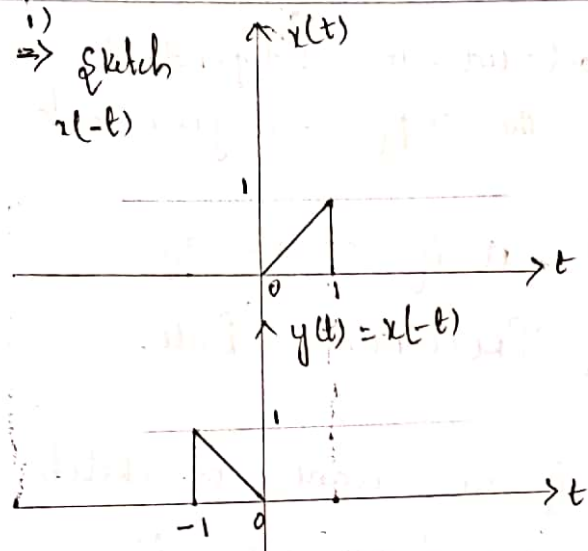 1)
⇒ Sketch
x(-t)
x(t)
1
0 1 t
y(t) = x(-t)
1
-1 0 t